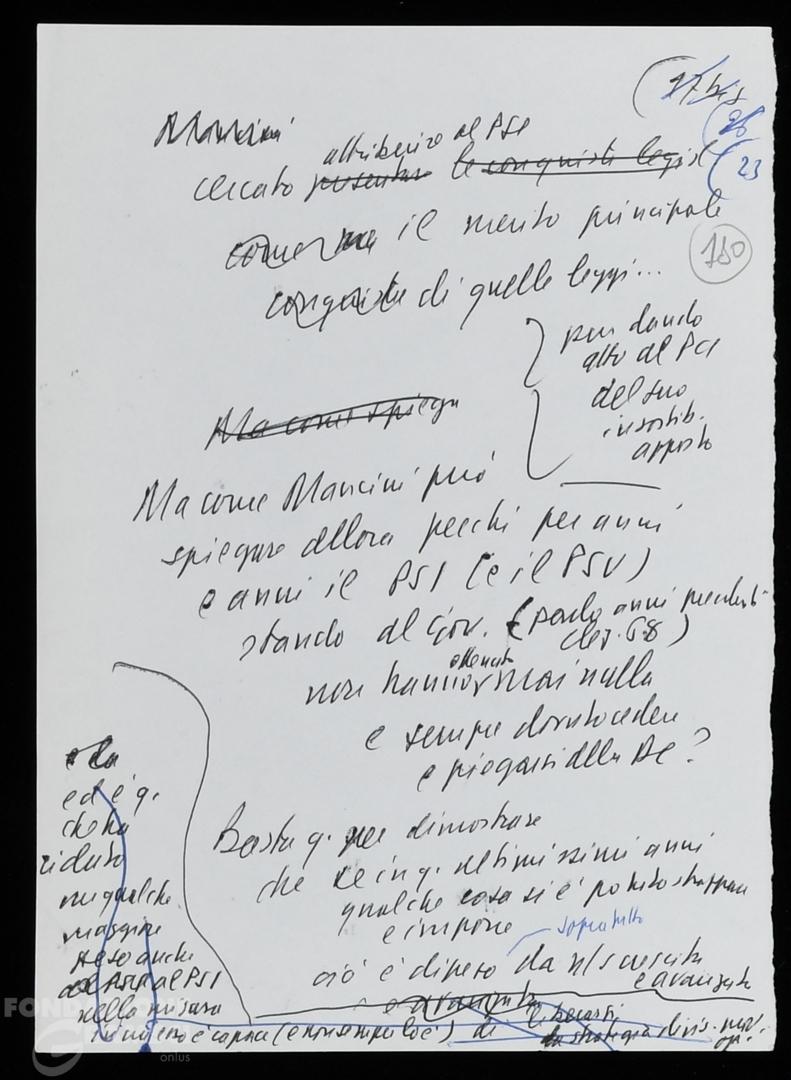 (27 bis
(26
(23
180
Mancini
attribuire al PSI
cercato presentare le conquiste legisl
come il merito principale
conquiste di quelle leggi...
pur dando
atto al PCI
del suo
insostib.
apporto
Ma come spiega
Ma come Mancini può
spiegare allora perché per anni
e anni il PSI (e il PSU)
stando al Gov. (parlo anni precedenti
cles. 68)
ottenuto
non hanno mai nulla
e sempre dovuto cedere
e piegarsi alla DC?
Basta q. per dimostrare
che se in q. ultimissimi anni
qualche cosa si è potuto strappare
e imporre
soprattutto
ciò è dipeso da n/s crescita
e avanzata
e avanzata
ed è q.
che ha
ridato
un qualche
margine
stesso anche
al PSI
nella misura
in cui esso è capace (e non sempre lo è) di liberarsi
strategia divis. mov.
op.
FONDAZIONE
onlus